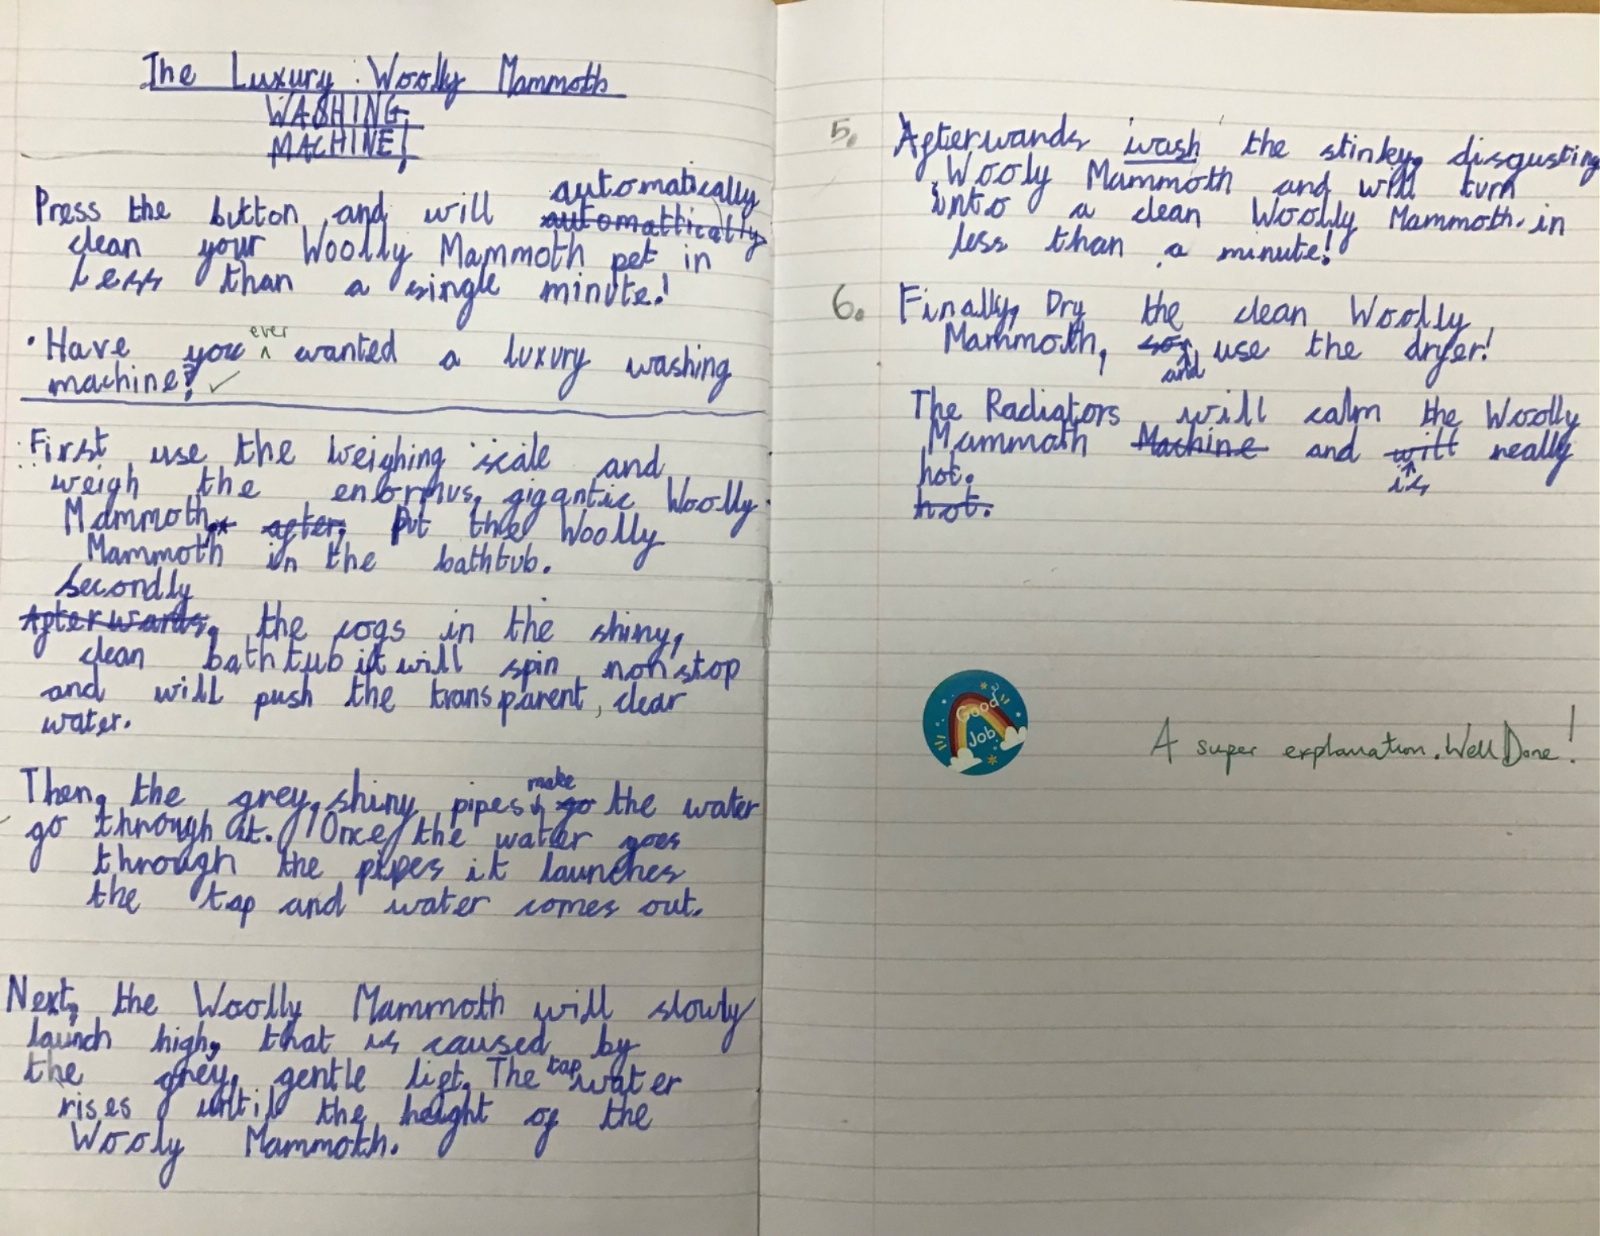 The Luxury Woolly Mammoth
WASHING
MACHINE!
automatically
Press the button and will automattically
clean your Woolly Mammoth pet in
Less than a single minute!
ever
• Have you ^ wanted a luxury washing
machine? ✓
First use the weighing scale and
weigh the enormus, gigantic Woolly
Mammoth, after, Put the Woolly
Mammoth in the bathtub.
Secondly
Afterwards, the cogs in the shiny,
clean bathtub it will spin non stop
and will push the transparent, clear
water.
make
Then, the grey, shiny pipes go the water
go through it. // Once the water goes
through the pipes it launches
the tap and water comes out.
Next, the Woolly Mammoth will slowly
launch high, that is caused by
the grey, gentle lift. The tap water
rises until the height of the
Wooly Mammoth.
5. Afterwands wash the stinky, disgusting
Wooly Mammoth and will turn
into a clean Woolly Mammoth in
less than a minute!
6. Finally, Dry the clean Woolly
Mammoth, so, use the dryer!
and
The Radiators will calm the Woolly
Mammoth Machine and will really
is
hot.
hot.
Good
Job
A super explanation. Well Done!